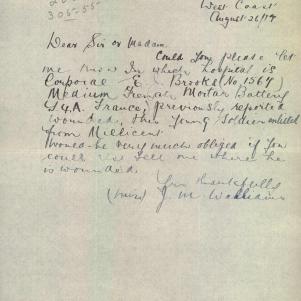 305-55-
West Coast
August 26/17
Dear Sir or Madam.
Could you please let
me know in which hospital is
Corporal E Brooks (No 1567)
Medium Trench Mortar Battery
France, previously reported
wounded, this young soldier enlisted
from Millicent
Would be very much obliged if you
could tell me where he
is wounded.
Yrs thankfully
(Miss) J. M. Williams